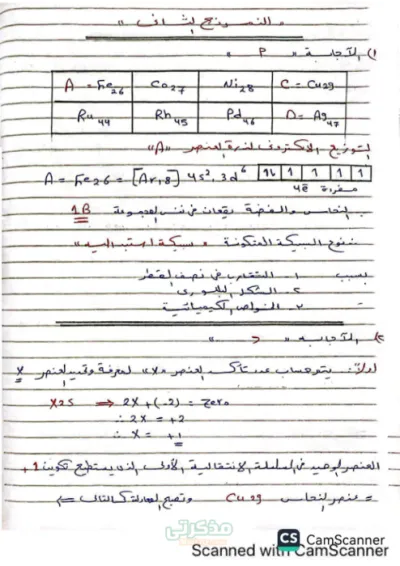 " النموذج الثانى "
١) الإجابة " P "
A = Fe26 Co27 Ni28 C = Cu29
Ru44 Rh45 Pd46 D = Ag47
التوزيع الإلكترونى لذرة العنصر "A"
A = Fe26 = [Ar18] 4s², 3d⁶ 1L 1 1 1 1
مفردة 4ē
النحاس والفضة يقعان فى نفس المجموعة 1B
نوع السبيكة المتكونة " سبيكة استبدالية "
بسبب ١- التقارب فى نصف القطر
٢- الشكل البلورى
٣- الخواص الكيميائية
٢) الإجابة " ج "
أولاً: يتم حساب عدد تأكسد العنصر "X" لمعرفة وتحديد العنصر X
X2S ⇒ 2X + (-2) = Zero
∴ 2X = +2
∴ X = +1
العنصر الوحيد فى السلسلة الانتقالية الأولى الذى يستطيع تكوين +1
= عنصر النحاس Cu29 وتصبح المعادلة كالتالى
مذكرتى
CS CamScanner
Scanned with CamScanner